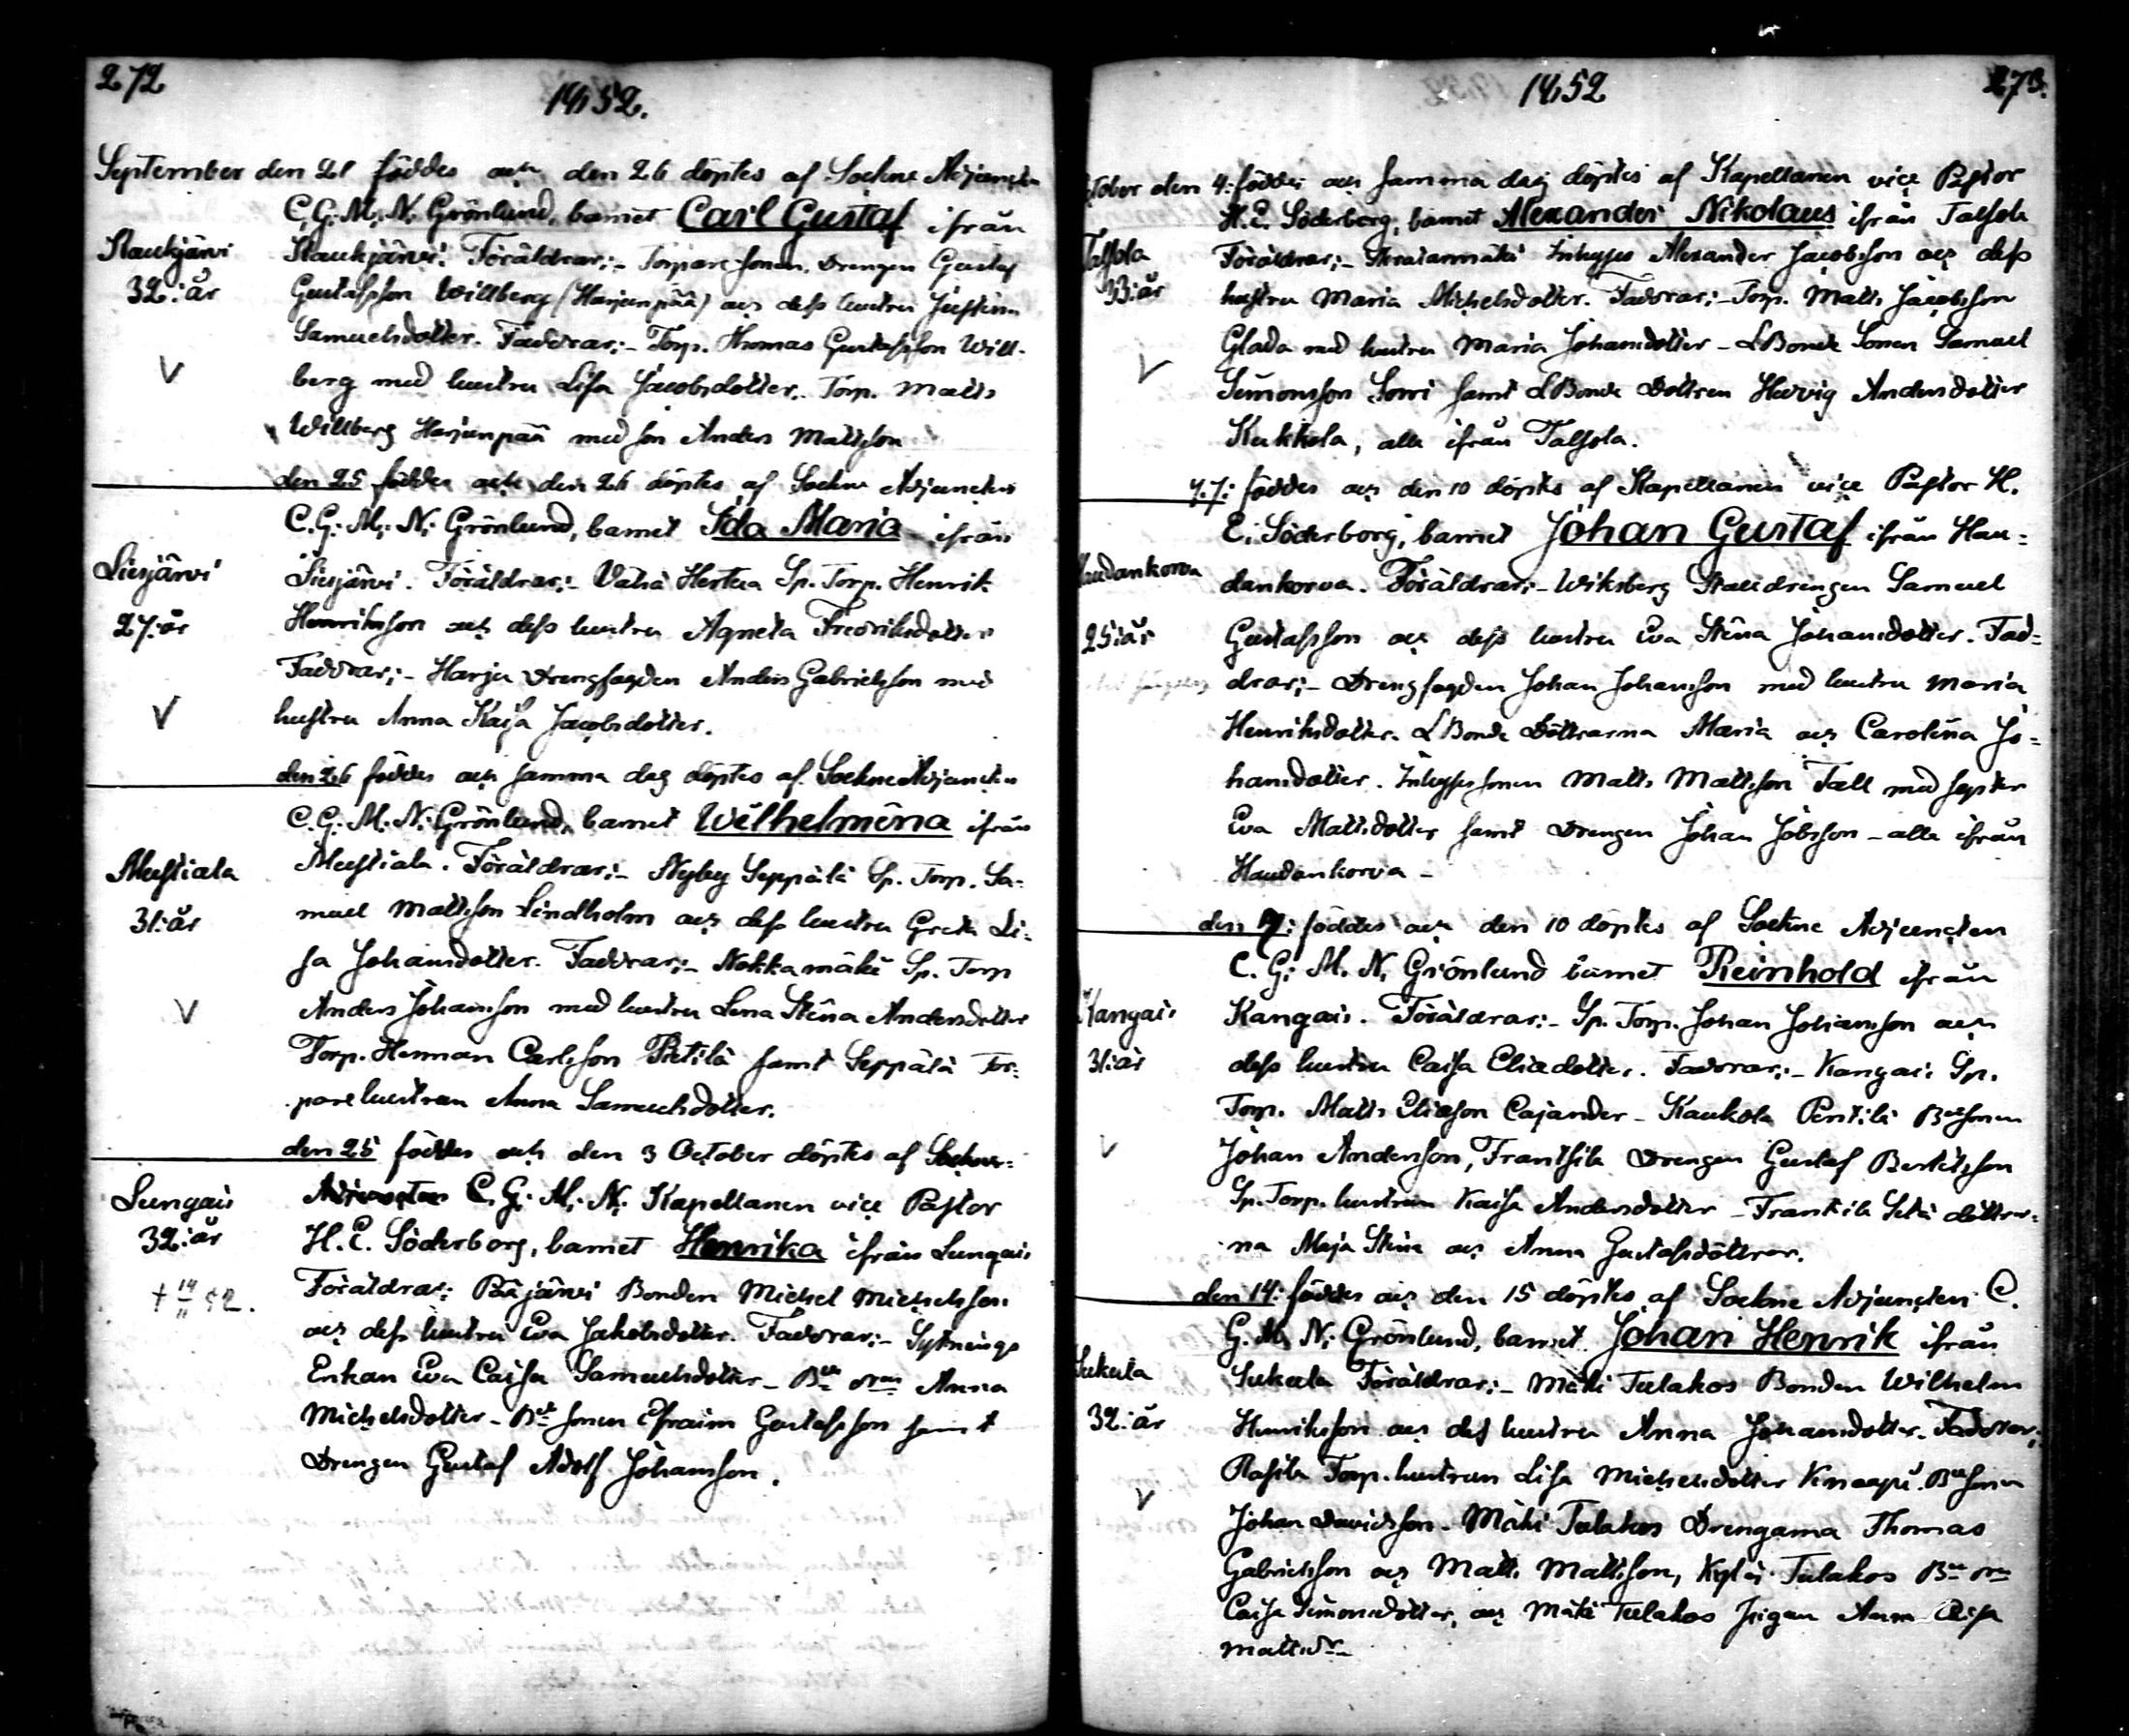 272
1852.
September den 21 föddes och den 26 döptes af Sockne Adjuncten
C. G. M. N. Grönlund, barnet Carl Gustaf ifrån
Kaukjärvi
32: år
Kaukjärvi. Föräldrar:- Torpare Sonen, Drengen Gustaf
Gustafsson Willberg (Harjunpää) och dess hustru Justina
Samuelsdotter. Faddrar:- Torp. Thomas Gustafsson Will-
berg med hustru Lisa Jacobsdotter. Torp. Matts
Willberg Harjunpää med son Anders Mattsson
den 25 föddes och den 26 döptes af Sockne Adjuncten
C. G: M: N: Grönlund, barnet Ida Maria ifrån
Liesjärvi
27: år
Liesjärvi. Föräldrar:- Vähä Hertua Sp. Torp. Henrik
Henriksson och dess hustru Agneta Fredriksdotter
Faddrar:- Harju Drengfogden Anders Gabrielsson med
hustru Anna Kajsa Jacobsdotter.
den 26 föddes och samma dag döptes af Sockne Adjuncten
C. G. M. N. Grönlund, barnet Wilhelmina ifrån
Mustiala
31: år
Mustiala. Föräldrar:- Nyby Seppälä Sp. Torp. Sa-
muel Mattsson Lindholm och dess hustru Greta Li-
sa Johansdotter. Faddrar:- Nokkamäki Sp. Torp
Anders Johansson med hustru Lena Stina Andersdotter
Torp. Herman Carlsson Pietilä samt Seppälä Tor-
pare hustrun Anna Samuelsdotter.
den 25 föddes och den 3 October döptes af Sockne-
Adjuncten C. G: M: N: Kapellanen vice Pastor
Lungais
32: år
† 14/11 52.
H. E. Söderborg, barnet Henrika ifrån Lungais
Föräldrar: Pääjärvi Bonden Michel Michelsson
och dess hustru Eva Jakobsdotter. Faddrar:- Sytnings
Enkan Eva Caisa Samuelsdotter - Bde drn Anna
Michelsdotter - Bde Sonen Efraim Gustafsson samt
Drengen Gustaf Adolf Johansson.
1852
273.
October den 4: föddes och samma dag döptes af Kapellanen vice Pastor
H. E. Söderborg, barnet Alexander Nikolaus ifrån Talsola
Talsola
33: år
Föräldrar:- Inhyses Alexander Jacobsson och dess
hustru Maria Michelsdotter. Faddrar:- Torp. Matts Jacobsson
Glada med hustru Maria Johansdotter - LBonde Sonen Samuel
Simonsson Sorri samt LBonde Dottren Hedvig Andersdotter
Kukkola, alla ifrån Talsola.
7: föddes och den 10 döptes af Kapellanen vice Pastor H.
E. Söderborg, barnet Johan Gustaf ifrån Hau-
Haudankorva
25: år
dankorva. Föräldrar:- Wiksberg Stalldrengen Samuel
Gustafsson och dess hustru Eva Stina Johansdotter. Fad-
drar:- Drengfogden Johan Johansson med hustru Maria
Henriksdotter. LBonde Döttrarna Maria och Carolina Jo-
hansdotter. Inhyses sonen Matts Mattsson Tall med syster
Eva Mattsdotter samt Drengen Johan Jöbsson - alla ifrån
Haudankorva -
den 7: föddes och den 10 döptes af Sockne Adjuncten
C. G: M. N. Grönlund barnet Reinhold ifrån
Kangais
31: år
Kangais. Föräldrar:- Sp. Torp. Johan Johansson och
dess hustru Caisa Eliædotter. Faddrar:- Kangais Sp.
Torp. Matts Eliæson Cajander - Kaukola Penttilä Bdesonen
Johan Andersson, Frantsila Drengen Gustaf Bertilsson
Sp. Torp. hustrun Kaisa Andersdotter - Frantsila Sekä döttrar-
na Maja Stina och Anna Gustafsdöttrar.
den 14: föddes och den 15 döptes af Sockne Adjuncten C.
G. M. N: Grönlund, barnet Johan Henrik ifrån
Sukula
32: år
Sukula Föräldrar:- Mäki Tulakos Bonden Wilhelm
Henriksson och dess hustru Anna Johansdotter. Faddrar:
Rasila Torp. hustrun Lisa Michelsdotter Knaapi. Bdesonen
Johan Davidsson. Mäki Tulakos Drengarna Thomas
Gabrielsson och Matts Mattsson, Kylä-Tulakos Bde drn
Caisa Simonsdotter, och Mäki Tulakos pigan Anna Caisa
Mattsdr